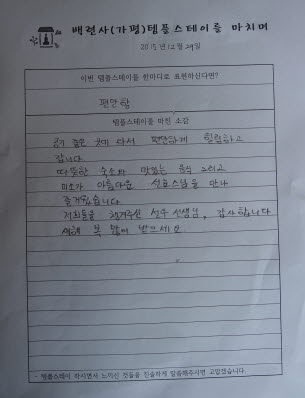 백련사(가평)템플스테이를 마치며
2015년 12월 29일
이번 템플스테이를 한마디로 표현하신다면?
편안함
템플스테이를 마친 소감
공기 좋은 곳에 와서 편안하게 힐링하고
갑니다.
따뜻한 숙소와 맛있는 음식 그리고
미소가 아름다운 스님을 만나
즐거웠습니다
저희들을 챙겨주신 선우 선생님, 감사합니다
새해 복 많이 받으세요.
- 템플스테이 하시면서 느끼신 것들을 진솔하게 말씀해주시면 고맙겠습니다.